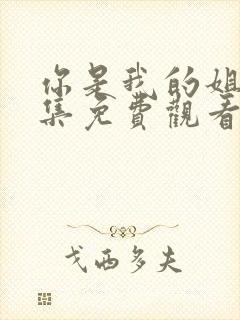 你是我的姐
集免費觀看
戈西多夫